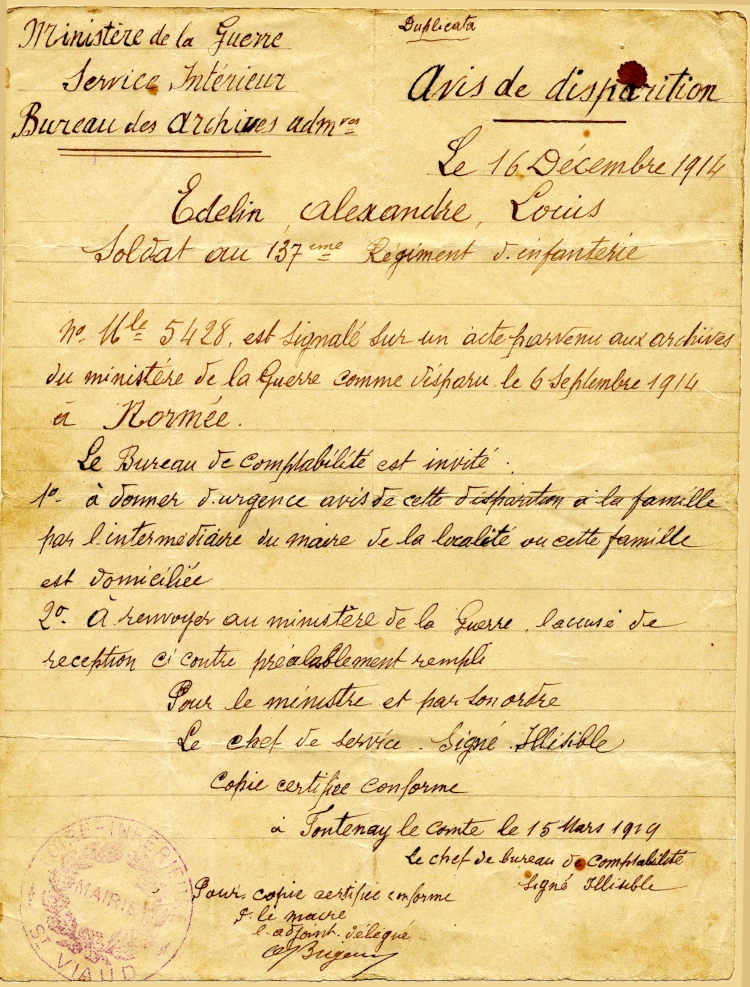 Duplicata
Ministère de la Guerre
Service Intérieur
Bureau des archives adm^ves
Avis de disparition
Le 16 Décembre 1914
Edelin, Alexandre, Louis
Soldat au 137^eme Régiment d'infanterie
N^o M^le 5428, est signalé sur un acte parvenu aux archives
du ministère de la Guerre comme disparu le 6 Septembre 1914
à Normée.
Le Bureau de comptabilité est invité.
1^o- à donner d'urgence avis de cette disparition à la famille
par l'intermédiaire du maire de la localité ou cette famille
est domiciliée
2^o- À renvoyer au ministère de la Guerre, l'accusé de
reception ci contre préalablement rempli
Pour le ministre et par son ordre
Le chef de service. Signé Illisible
Copie certifiée conforme
à Fontenay le comte le 15 Mars 1919
Le chef de bureau de comptabilité
Signé Illisible
Pour copie certifiée conforme
P. le maire
l'adjoint délégué
LOIRE-INFÉRIEURE
MAIRIE
ST VIAUD